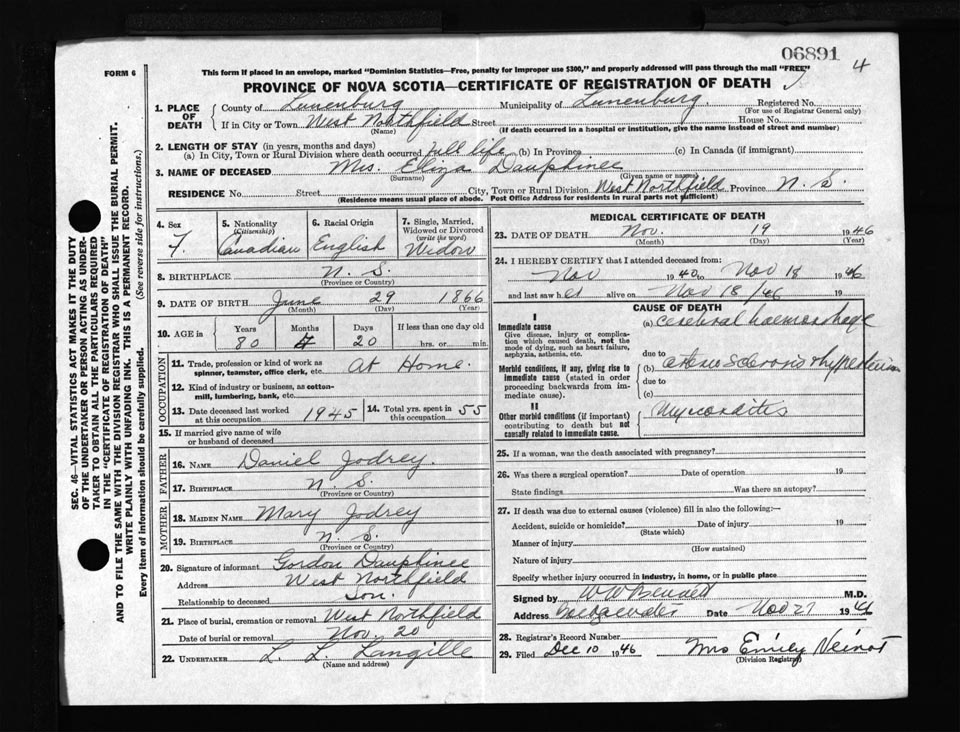 06891
4
FORM 6
This form if placed in an envelope, marked "Dominion Statistics—Free, penalty for improper use $300," and properly addressed will pass through the mail "FREE"
PROVINCE OF NOVA SCOTIA—CERTIFICATE OF REGISTRATION OF DEATH
1. PLACE OF DEATH County of Lunenburg Municipality of Lunenburg. Registered No.
(For use of Registrar General only)
If in City or Town West Northfield Street House No.
(Name) (If death occurred in a hospital or institution, give the name instead of street and number)
2. LENGTH OF STAY (in years, months and days)
(a) In City, Town or Rural Division where death occurred full life (b) In Province (c) In Canada (if immigrant)
3. NAME OF DECEASED Mrs. Eliza Dauphinee
(Surname) (Given name or names)
RESIDENCE No. Street City, Town or Rural Division West Northfield Province N. S.
(Residence means usual place of abode. Post Office Address for residents in rural parts not sufficient)
4. Sex F.
5. Nationality (Citizenship) Canadian
6. Racial Origin English
7. Single, Married, Widowed or Divorced (write the word) Widow
8. BIRTHPLACE N. S.
(Province or Country)
9. DATE OF BIRTH June 29 1866
(Month) (Day) (Year)
10. AGE in Years Months Days If less than one day old
80 4 20 hrs. or min.
OCCUPATION
11. Trade, profession or kind of work as spinner, teamster, office clerk, etc. At Home.
12. Kind of industry or business, as cotton-mill, lumbering, bank, etc.
13. Date deceased last worked at this occupation 1945 14. Total yrs. spent in this occupation 55
15. If married give name of wife or husband of deceased
FATHER
16. NAME Daniel Jodrey.
17. BIRTHPLACE N. S.
(Province or Country)
MOTHER
18. MAIDEN NAME Mary Jodrey
19. BIRTHPLACE N. S.
(Province or Country)
20. Signature of informant Gordon Dauphinee
Address West Northfield
Relationship to deceased Son.
21. Place of burial, cremation or removal West Northfield
Date of burial or removal Nov. 20
22. UNDERTAKER L. L. Langille
(Name and address)
MEDICAL CERTIFICATE OF DEATH
23. DATE OF DEATH Nov. 19 1946
(Month) (Day) (Year)
24. I HEREBY CERTIFY that I attended deceased from:
Nov 1940 to Nov 18 1946
and last saw her alive on Nov 18/46 19
CAUSE OF DEATH
I
Immediate cause (a) Cerebral haemorrhage
Give disease, injury or complication which caused death, not the mode of dying, such as heart failure, asphyxia, asthenia, etc.
due to
Morbid conditions, if any, giving rise to immediate cause (stated in order proceeding backwards from immediate cause). (b)
due to
(c)
II
Other morbid conditions (if important) contributing to death but not causally related to immediate cause. Myocarditis
25. If a woman, was the death associated with pregnancy?
26. Was there a surgical operation? Date of operation 19
State findings Was there an autopsy?
27. If death was due to external causes (violence) fill in also the following:—
Accident, suicide or homicide? Date of injury 19
(State which)
Manner of injury
(How sustained)
Nature of injury
Specify whether injury occurred in industry, in home, or in public place
Signed by W W Bennett M.D.
Address Bridgewater Date Nov 27 1946
28. Registrar's Record Number
29. Filed Dec 10 1946 Mrs Emily
(Division Registrar)
SEC. 46—VITAL STATISTICS ACT MAKES IT THE DUTY
OF THE UNDERTAKER OR PERSON ACTING AS UNDER-
TAKER TO OBTAIN ALL THE PARTICULARS REQUIRED
IN THE "CERTIFICATE OF REGISTRATION OF DEATH"
AND TO FILE THE SAME WITH THE DIVISION REGISTRAR WHO SHALL ISSUE THE BURIAL PERMIT.
WRITE PLAINLY WITH UNFADING INK. THIS IS A PERMANENT RECORD.
Every item of information should be carefully supplied. (See reverse side for instructions.)